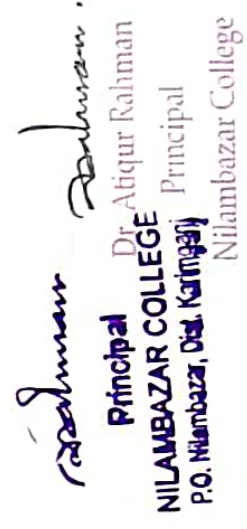 Principal
NILAMBAZAR COLLEGE
P.O. Nilambazar, Dist. Karimganj
Dr. Atiqur Rahman
Principal
Nilambazar College